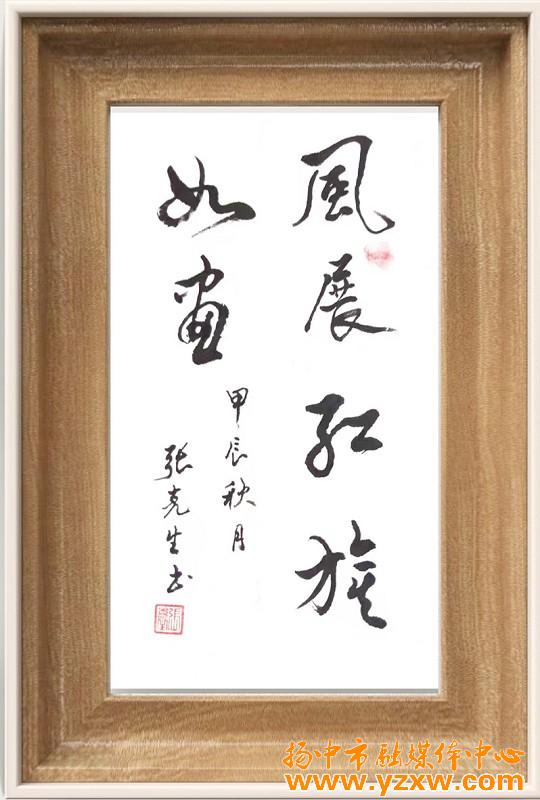 風展红旗
如畫
甲辰秋月
张克生书
扬中市融媒体中心
www.yzxw.com